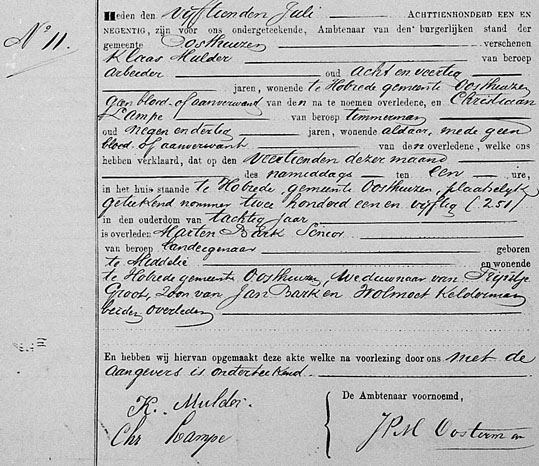 N° 11.
Heden den vijftienden Juli ACHTTIENHONDERD EEN EN
NEGENTIG, zijn voor ons ondergeteekende, Ambtenaar van den burgerlijken stand der
gemeente Oosthuizen verschenen
Klaas Mulder van beroep
arbeider oud acht en veertig
jaren, wonende te Hobrede gemeente Oosthuizen
geen bloed- of aanverwant van den na te noemen overledene, en Christiaan
Lampe van beroep timmerman
oud negen en dertig jaren, wonende aldaar, mede geen
bloed- of aanverwant van den overledene, welke ons
hebben verklaard, dat op den veertienden dezer maand
des namiddags ten een ure,
in het huis staande te Hobrede, gemeente Oosthuizen, plaatselijk
geteekend nommer twee honderd een en vijftig (251)
in den ouderdom van tachtig jaar
is overleden Marten Bark Senior
van beroep landeigenaar geboren
te Middelie en wonende
te Hobrede gemeente Oosthuizen, weduwnaar van Trijntje
Groot, Zoon van Jan Bark en Wolmoet Kelderman
beiden overleden
En hebben wij hiervan opgemaakt deze akte welke na voorlezing door ons met de
aangevers is onderteekend.
K. Mulder.
Chr Lampe
De Ambtenaar voornoemd,
JPM Oosterman